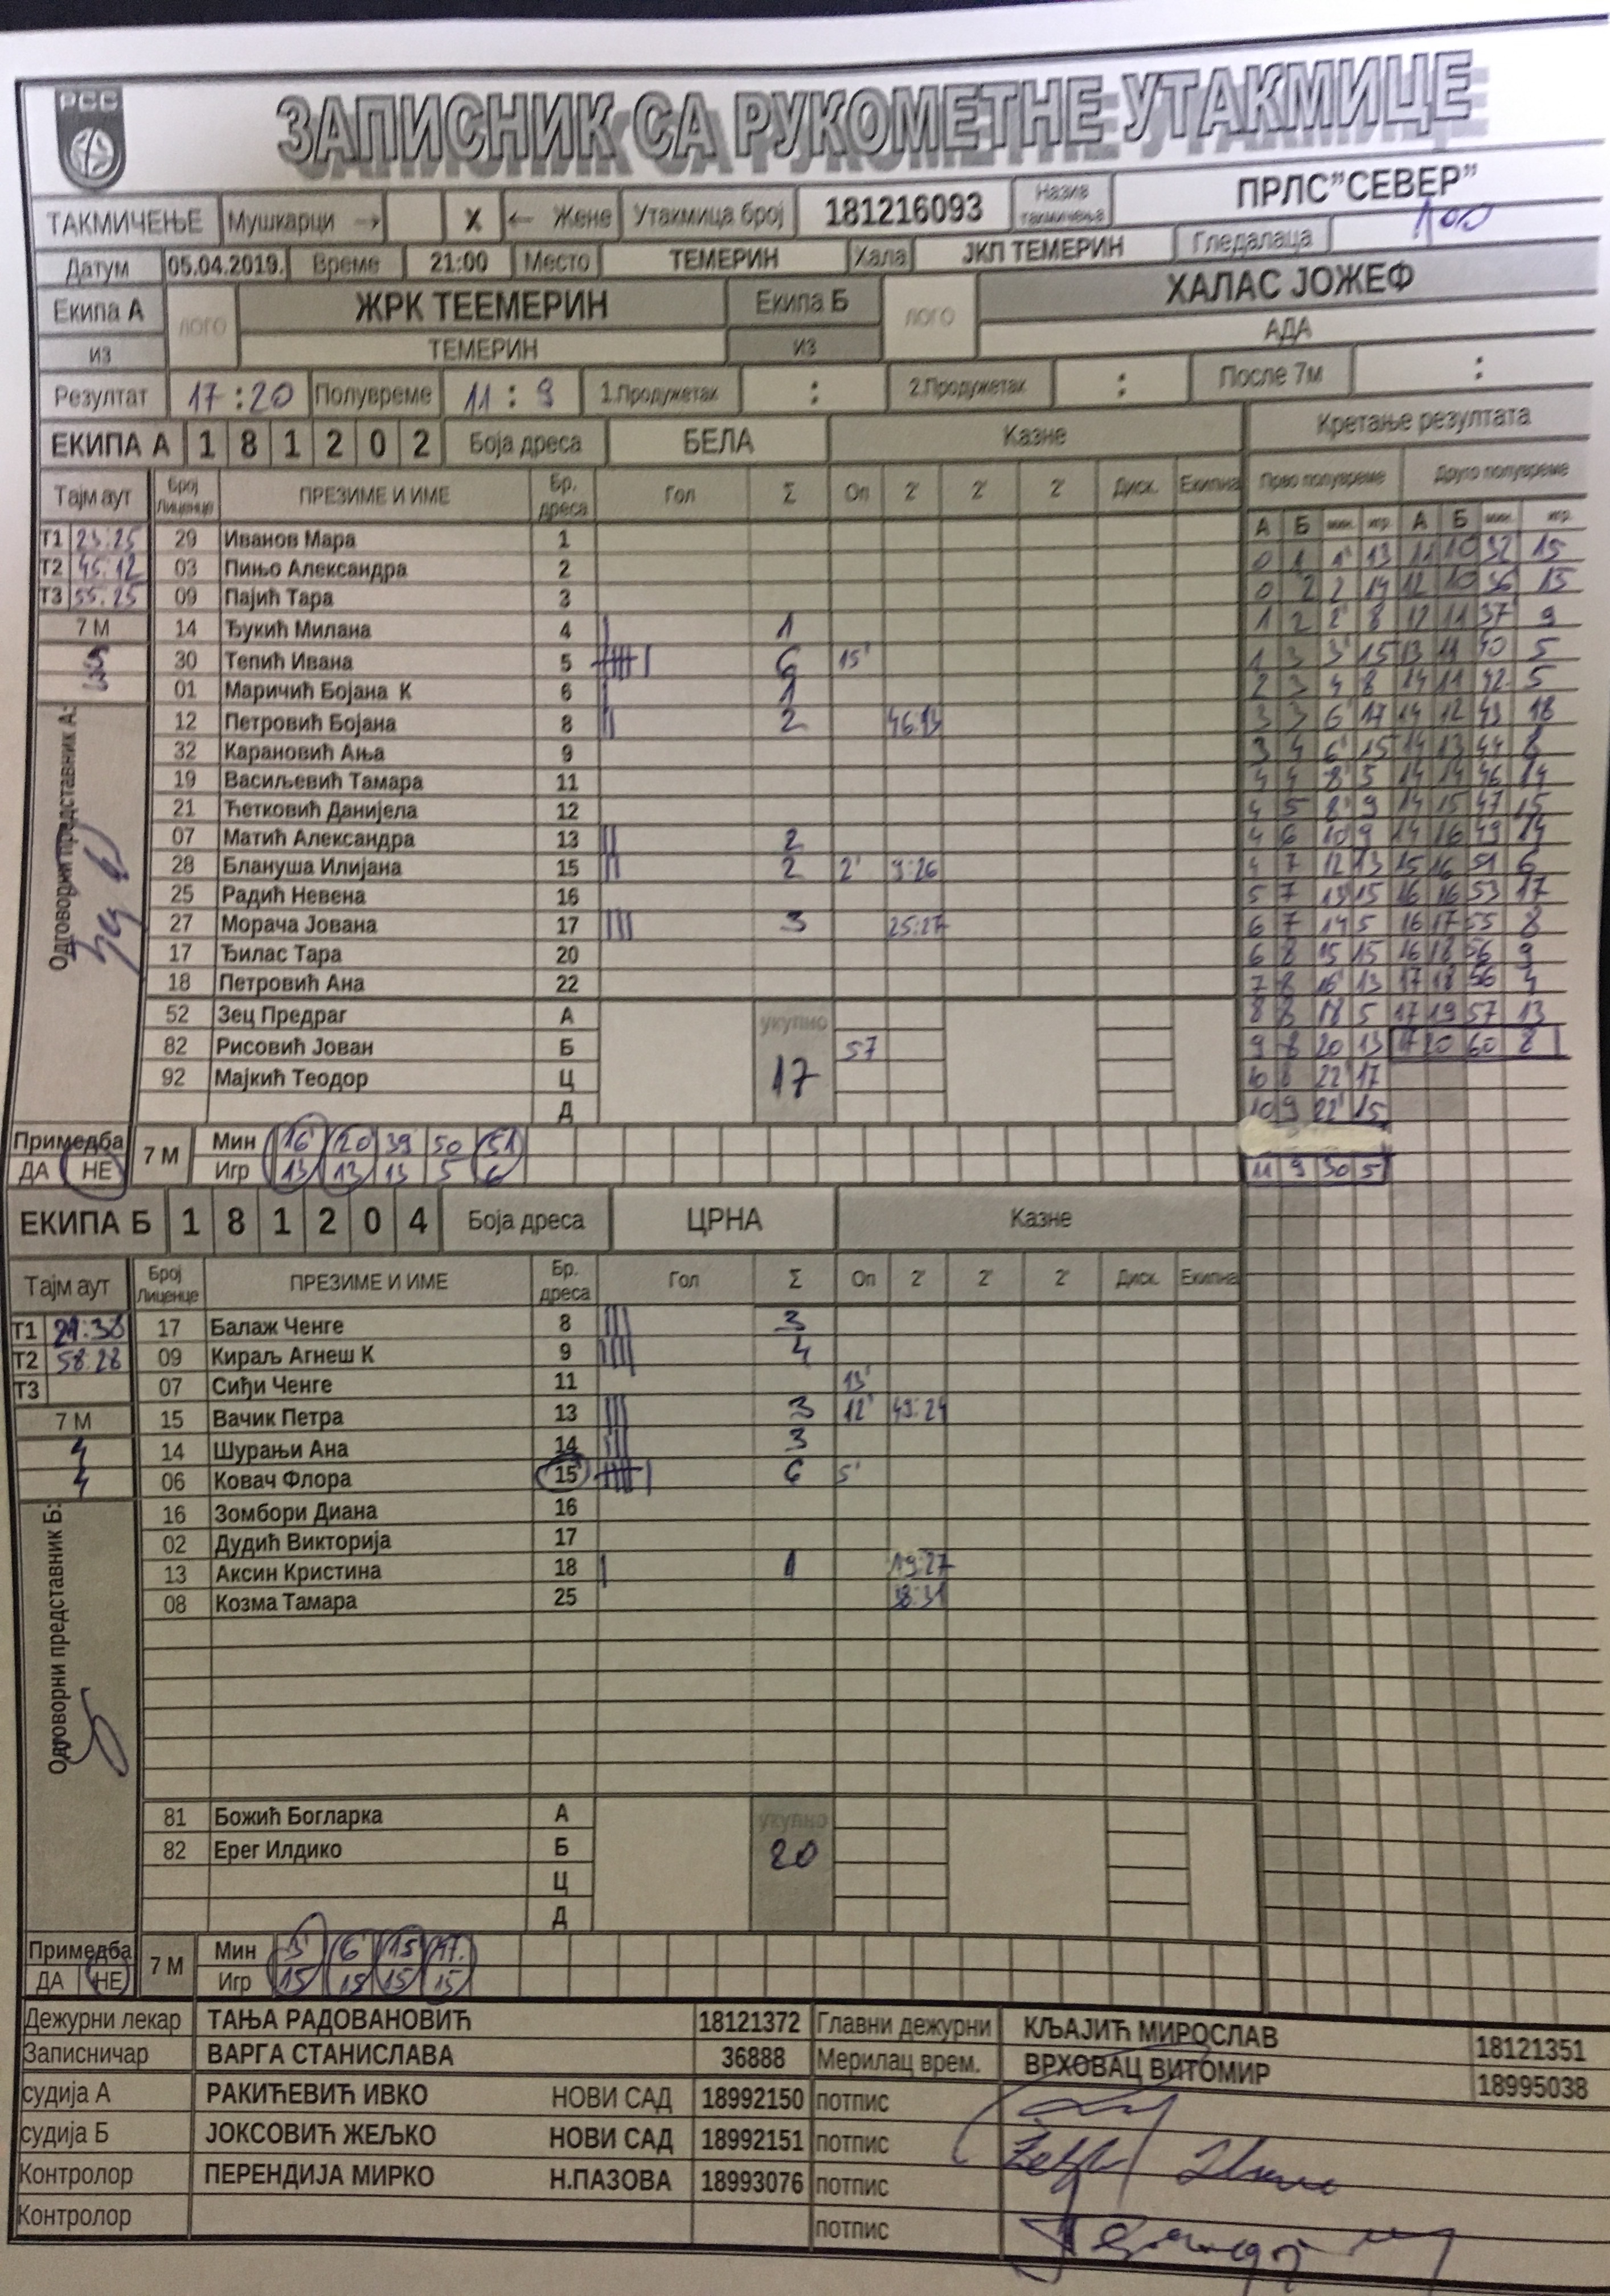 РСС
ЗАПИСНИК СА РУКОМЕТНЕ УТАКМИЦЕ
ТАКМИЧЕЊЕ Мушкарци → X ← Жене Утакмица број 181216093 Назив такмичења ПРЛС"СЕВЕР"
Датум 05.04.2019. Време 21:00 Место ТЕМЕРИН Хала ЈКП ТЕМЕРИН Гледалаца 100
Екипа А лого ЖРК ТЕЕМЕРИН Екипа Б лого ХАЛАС ЈОЖЕФ
из ТЕМЕРИН из АДА
Резултат 17:20 Полувреме 11:9 1.Продужетак : 2.Продужетак : После 7м :
ЕКИПА А 1 8 1 2 0 2 Боја дреса БЕЛА Казне Кретање резултата
Тајм аут Број Лиценце ПРЕЗИМЕ И ИМЕ Бр. дреса Гол Σ Оп 2' 2' 2' Диск. Екипна Прво полувреме Друго полувреме
А Б мин. игр. А Б мин. игр.
Т1 23:25 29 Иванов Мара 1
0 1 1' 13 11 10 32 15
Т2 45:12 03 Пињо Александра 2
0 2 2 14 12 10 36 13
Т3 55:25 09 Пајић Тара 3
1 2 2' 8 12 11 37 9
7 М 14 Ђукић Милана 4 1
30 Тепић Ивана 5 6 15'
1 3 3' 15 13 11 40 5
01 Маричић Бојана К 6 1
2 3 4 8 14 11 42 5
12 Петровић Бојана 8 2 46:13
3 3 6' 17 14 12 43 18
32 Карановић Ања 9
3 4 6' 15 14 13 44 8
19 Васиљевић Тамара 11
4 4 8' 5 14 14 46 14
21 Ћетковић Данијела 12
4 5 8' 9 14 15 47 15
07 Матић Александра 13 2
4 6 10 9 14 16 49 14
28 Блануша Илијана 15 2 2' 9:26
4 7 12 13 15 16 51 6
25 Радић Невена 16
5 7 13 15 16 16 53 17
27 Морача Јована 17 3 25:27
6 7 14 5 16 17 55 8
17 Ђилас Тара 20
6 8 15 15 16 18 56 9
18 Петровић Ана 22
7 8 16' 13 17 18 56 4
52 Зец Предраг А укупно
8 8 18 5 17 19 57 13
82 Рисовић Јован Б 17 57
9 8 20 13 17 20 60 8
92 Мајкић Теодор Ц
10 8 22' 17
Д
10 9 22' 15
Одговорни представник А:
Примедба ДА НЕ 7 М Мин 16' 20 39 50 51
Игр 13 13 13 5 6
11 9 30 5
ЕКИПА Б 1 8 1 2 0 4 Боја дреса ЦРНА Казне
Тајм аут Број Лиценце ПРЕЗИМЕ И ИМЕ Бр. дреса Гол Σ Оп 2' 2' 2' Диск. Екипна
Т1 21:38 17 Балаж Ченге 8 3
Т2 58:28 09 Кираљ Агнеш К 9 4
Т3 07 Сиђи Ченге 11 13'
7 М 15 Вачик Петра 13 3 12' 49:24
4 14 Шурањи Ана 14 3
4 06 Ковач Флора 15 6 5'
16 Зомбори Диана 16
02 Дудић Викторија 17
13 Аксин Кристина 18 1 19:27
08 Козма Тамара 25 38:31
Одговорни представник Б:
81 Божић Богларка А укупно
82 Ерег Илдико Б 20
Ц
Д
Примедба ДА НЕ 7 М Мин 3' 6' 15' 47.
Игр 15 15 15 15
Дежурни лекар ТАЊА РАДОВАНОВИЋ 18121372 Главни дежурни КЉАЈИЋ МИРОСЛАВ 18121351
Записничар ВАРГА СТАНИСЛАВА 36888 Мерилац врем. ВРХОВАЦ ВИТОМИР 18995038
судија А РАКИЋЕВИЋ ИВКО НОВИ САД 18992150 потпис
судија Б ЈОКСОВИЋ ЖЕЉКО НОВИ САД 18992151 потпис
Контролор ПЕРЕНДИЈА МИРКО Н.ПАЗОВА 18993076 потпис
Контролор потпис